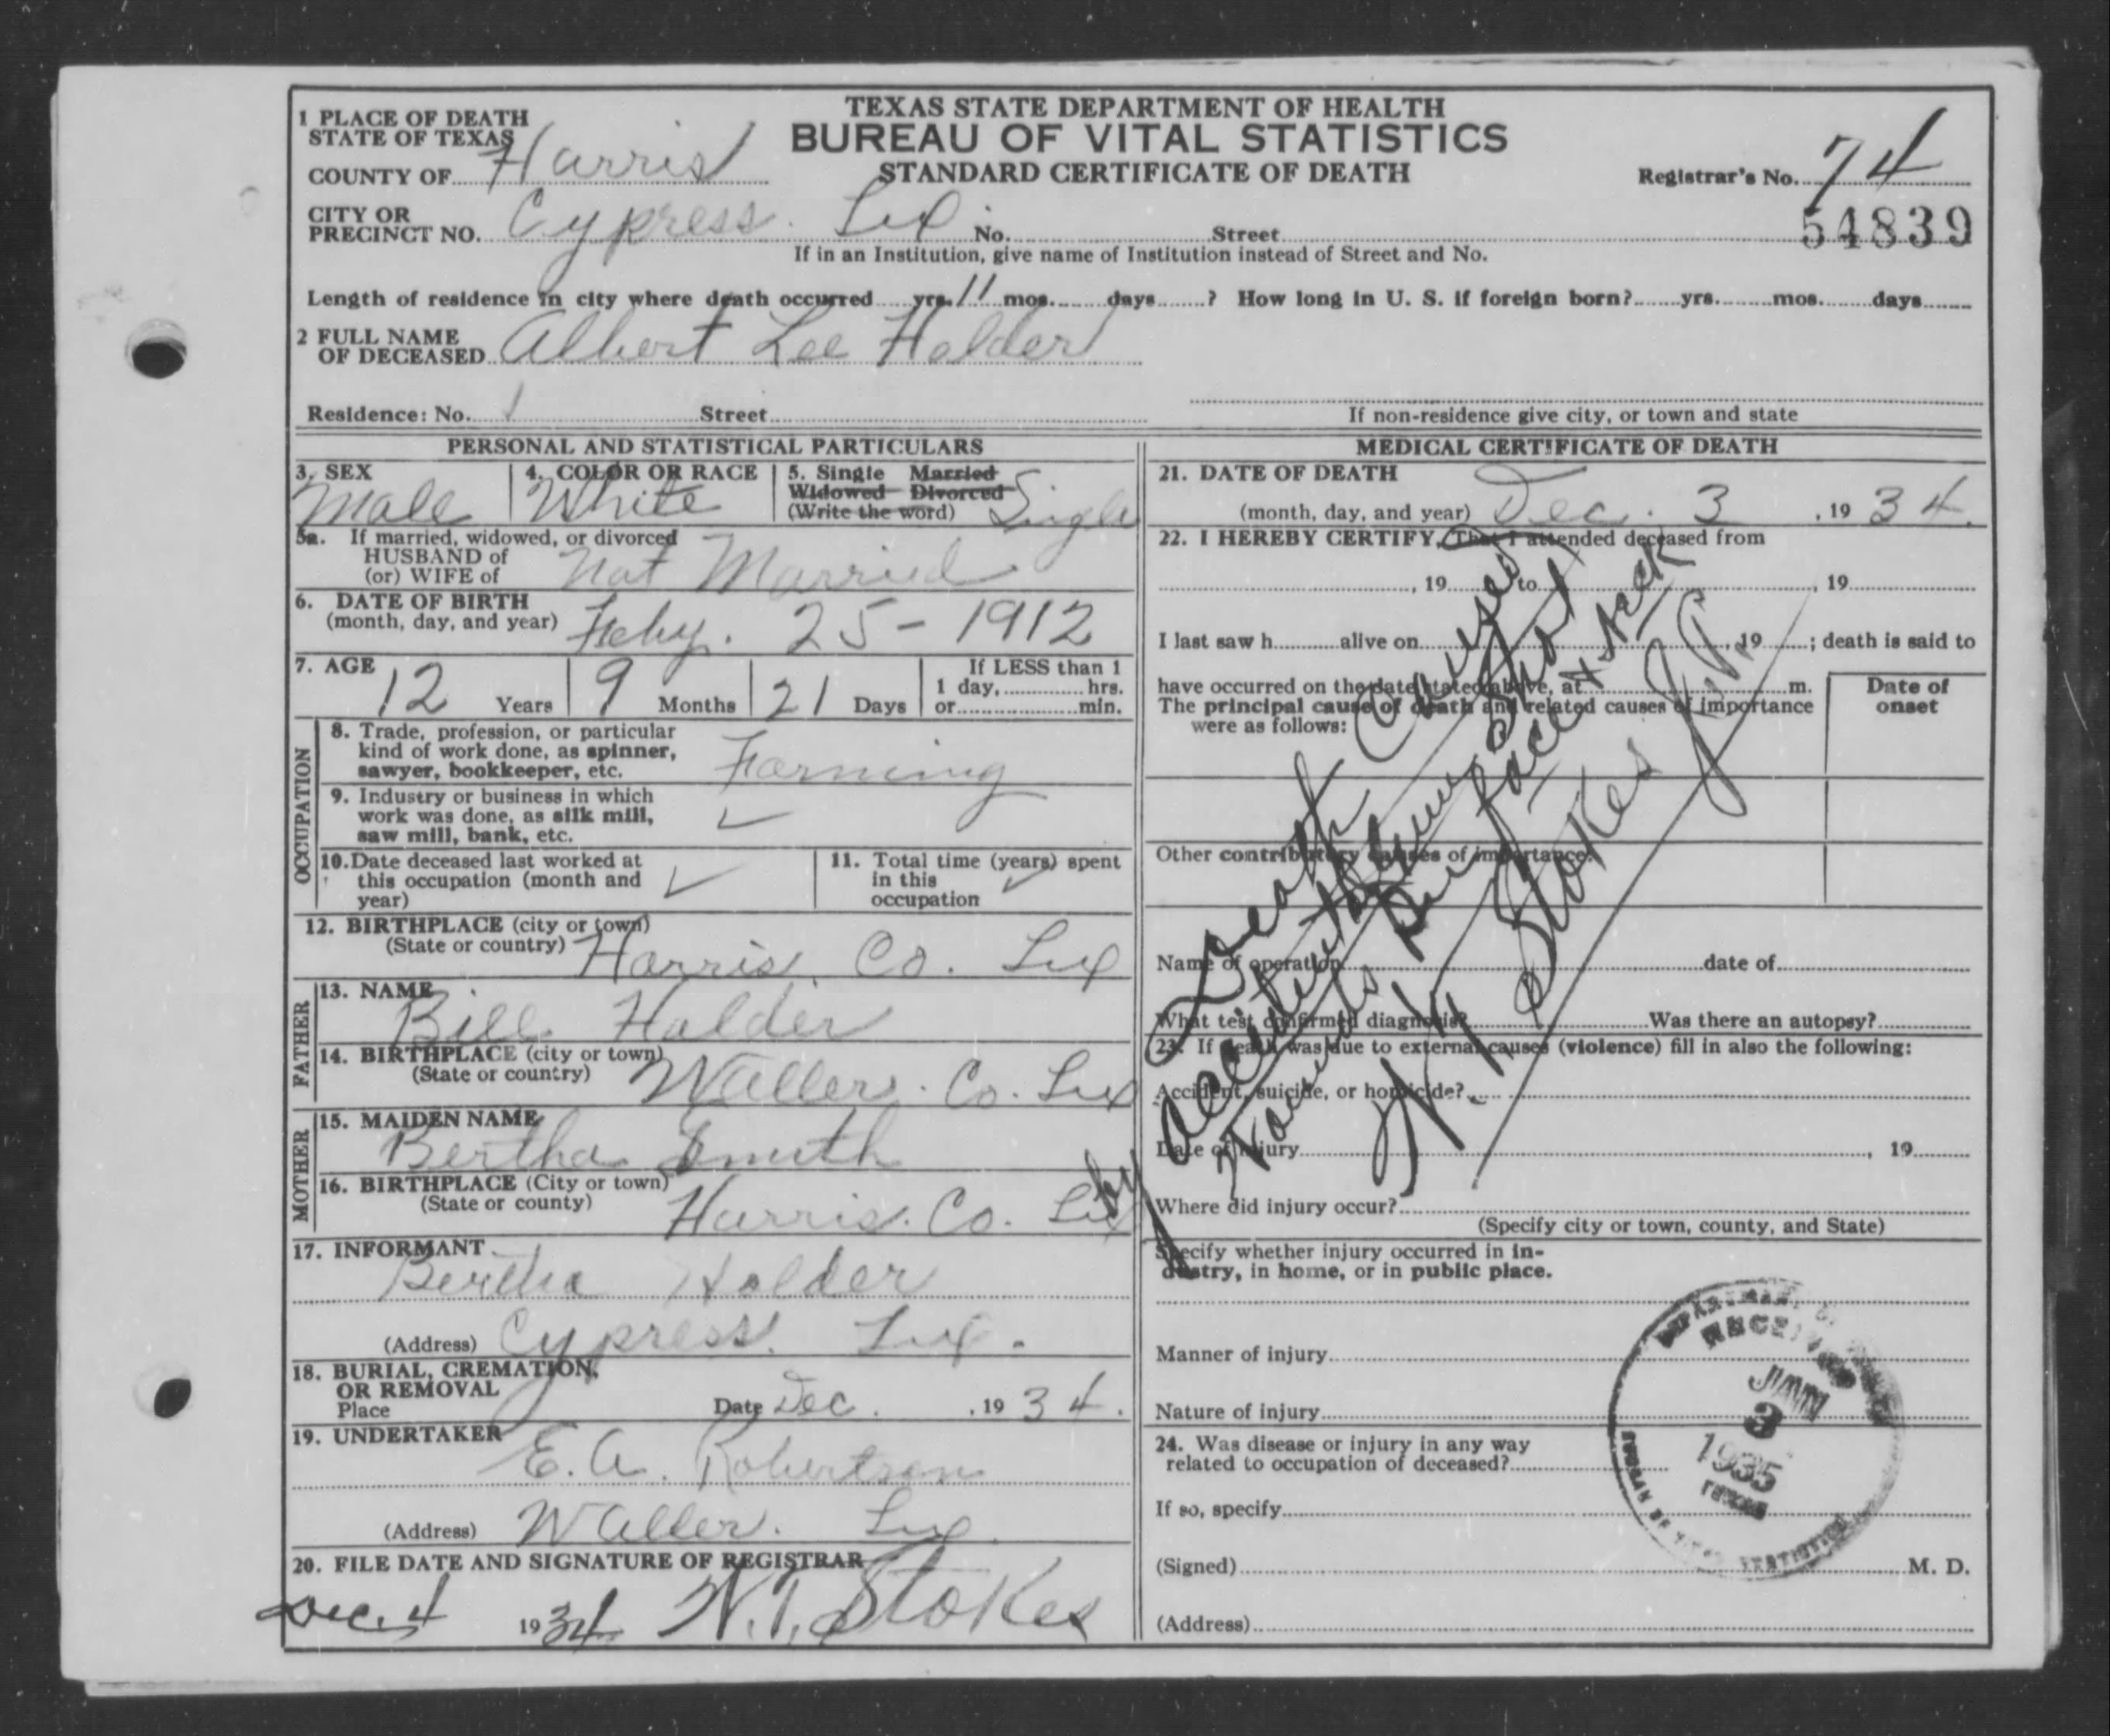 TEXAS STATE DEPARTMENT OF HEALTH
BUREAU OF VITAL STATISTICS
STANDARD CERTIFICATE OF DEATH
1 PLACE OF DEATH
STATE OF TEXAS
COUNTY OF Harris
Registrar's No. 74
CITY OR
PRECINCT NO. Cypress. Tex. No. Street
54839
If in an Institution, give name of Institution instead of Street and No.
Length of residence in city where death occurred yrs. 11 mos. days ? How long in U. S. if foreign born? yrs. mos. days
2 FULL NAME
OF DECEASED Albert Lee Holder
Residence: No. Street
If non-residence give city, or town and state
PERSONAL AND STATISTICAL PARTICULARS
3. SEX Male
4. COLOR OR RACE White
5. Single Married
Widowed Divorced
(Write the word) Single
5a. If married, widowed, or divorced
HUSBAND of
(or) WIFE of Not Married
6. DATE OF BIRTH
(month, day, and year) Feby. 25- 1912
7. AGE 12 Years 9 Months 21 Days
If LESS than 1
1 day, hrs.
or min.
OCCUPATION
8. Trade, profession, or particular
kind of work done, as spinner,
sawyer, bookkeeper, etc. Farming
9. Industry or business in which
work was done, as silk mill,
saw mill, bank, etc.
10. Date deceased last worked at
this occupation (month and
year)
11. Total time (years) spent
in this
occupation
12. BIRTHPLACE (city or town)
(State or country) Harris. Co. Tex
FATHER
13. NAME
Bill Holder
14. BIRTHPLACE (city or town)
(State or country) Waller. Co. Tex
MOTHER
15. MAIDEN NAME
Bertha Smith
16. BIRTHPLACE (City or town)
(State or county) Harris. Co. Tex
17. INFORMANT
Bertha Holder
(Address) Cypress. Tex.
18. BURIAL, CREMATION,
OR REMOVAL
Place Date Dec. , 19 34.
19. UNDERTAKER
E. A. Robertson
(Address) Waller. Tex.
20. FILE DATE AND SIGNATURE OF REGISTRAR
Dec. 4 1934 W. T. Stokes
MEDICAL CERTIFICATE OF DEATH
21. DATE OF DEATH
(month, day, and year) Dec. 3 , 19 34.
22. I HEREBY CERTIFY, That I attended deceased from
, 19 to , 19
I last saw h alive on , 19 ; death is said to
have occurred on the date stated above, at m.
The principal cause of death and related causes of importance
were as follows:
Date of
onset
Other contributory causes of importance:
Name of operation date of
What test confirmed diagnosis? Was there an autopsy?
23. If death was due to external causes (violence) fill in also the following:
Accident, suicide, or homicide?
Date of injury , 19
Where did injury occur?
(Specify city or town, county, and State)
Specify whether injury occurred in in-
dustry, in home, or in public place.
Manner of injury
Nature of injury
24. Was disease or injury in any way
related to occupation of deceased?
If so, specify
(Signed) M. D.
(Address)
Death Caused
by Accidental Shot
Wounds in face & neck
W. T. Stokes J.P.
RECEIVED
JAN
3
1935
TEXAS